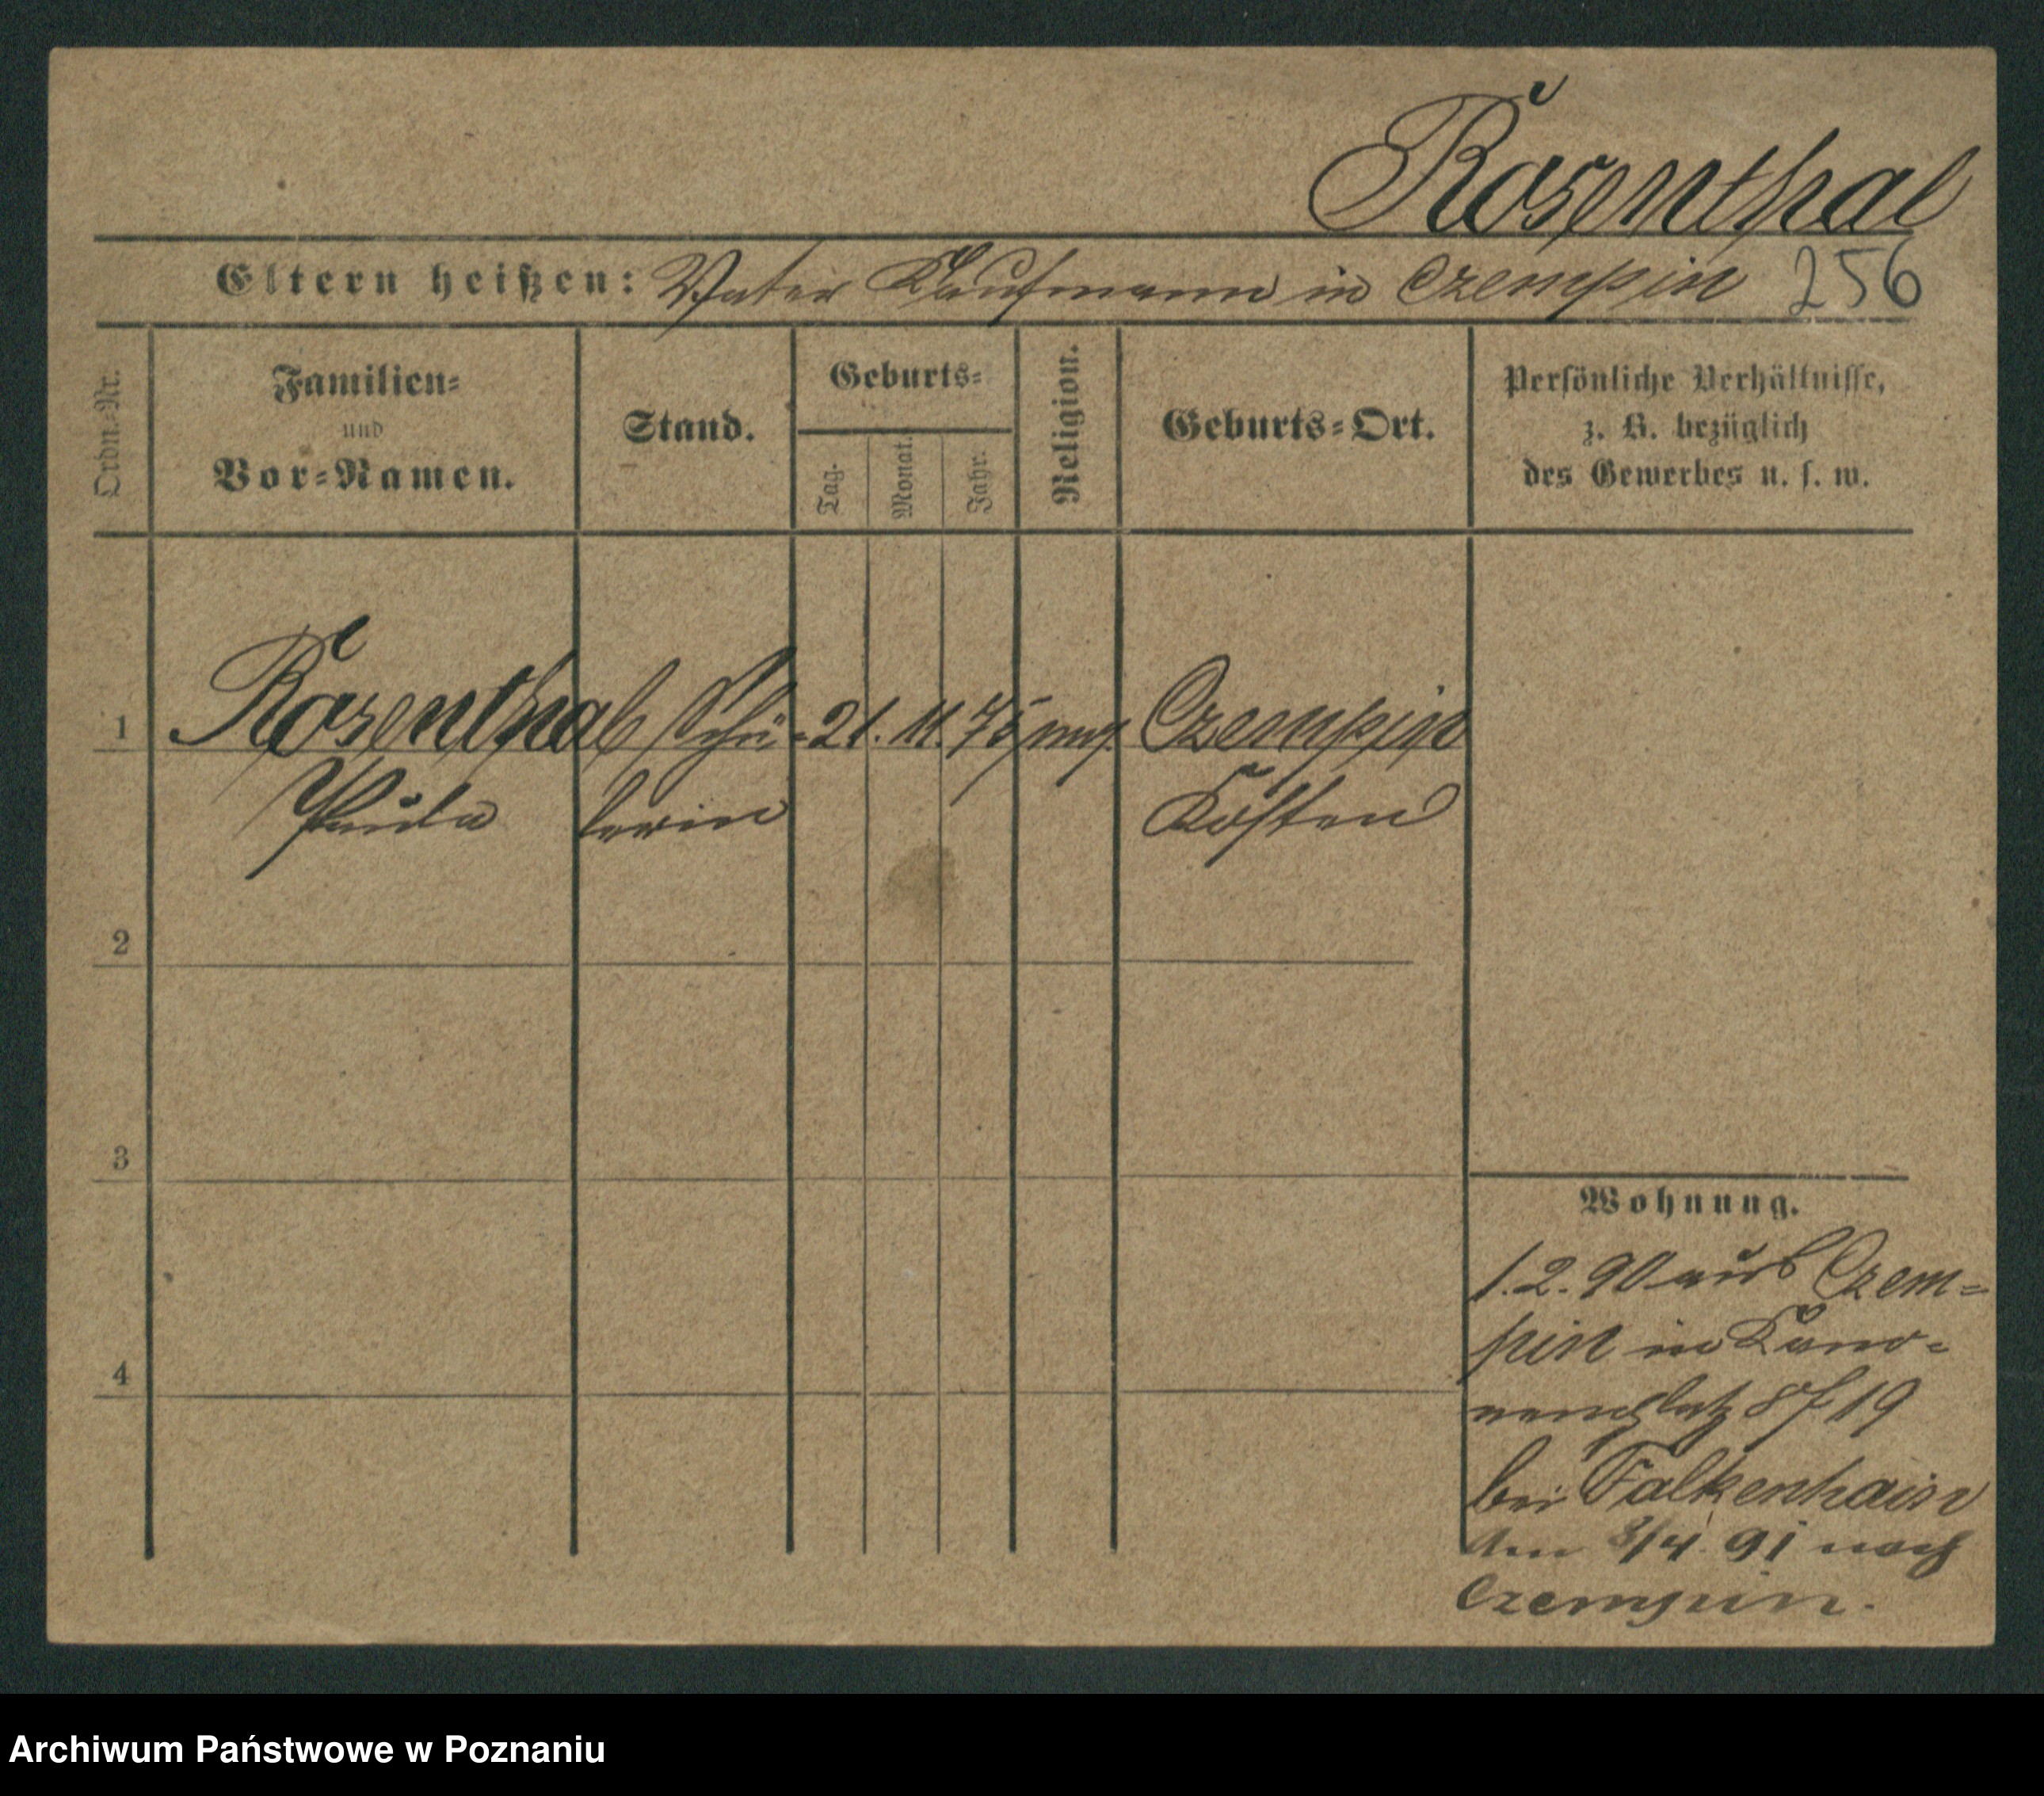 Rosenthal
Eltern heißen: Vater Kaufmann in Czempin 256
Ordn.-Nr.
Familien-
und
Vor-Namen.
Stand.
Geburts-
Tag.
Monat.
Jahr.
Religion.
Geburts-Ort.
Persönliche Verhältnisse,
z. B. bezüglich
des Gewerbes u. s. w.
1 Rosenthal Schü- 21. 11. 75 mos. Czempin
Paula lerin Kosten
2
3
4
Wohnung.
1.2.90 aus Czem-
pin in Kano-
nenplatz 8 f 19
bei Falkenhain
den 3/4. 91 nach
Czempin.
Archiwum Państwowe w Poznaniu